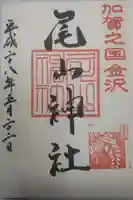 加賀之国金沢
尾山神社
平成二八年五月二二日